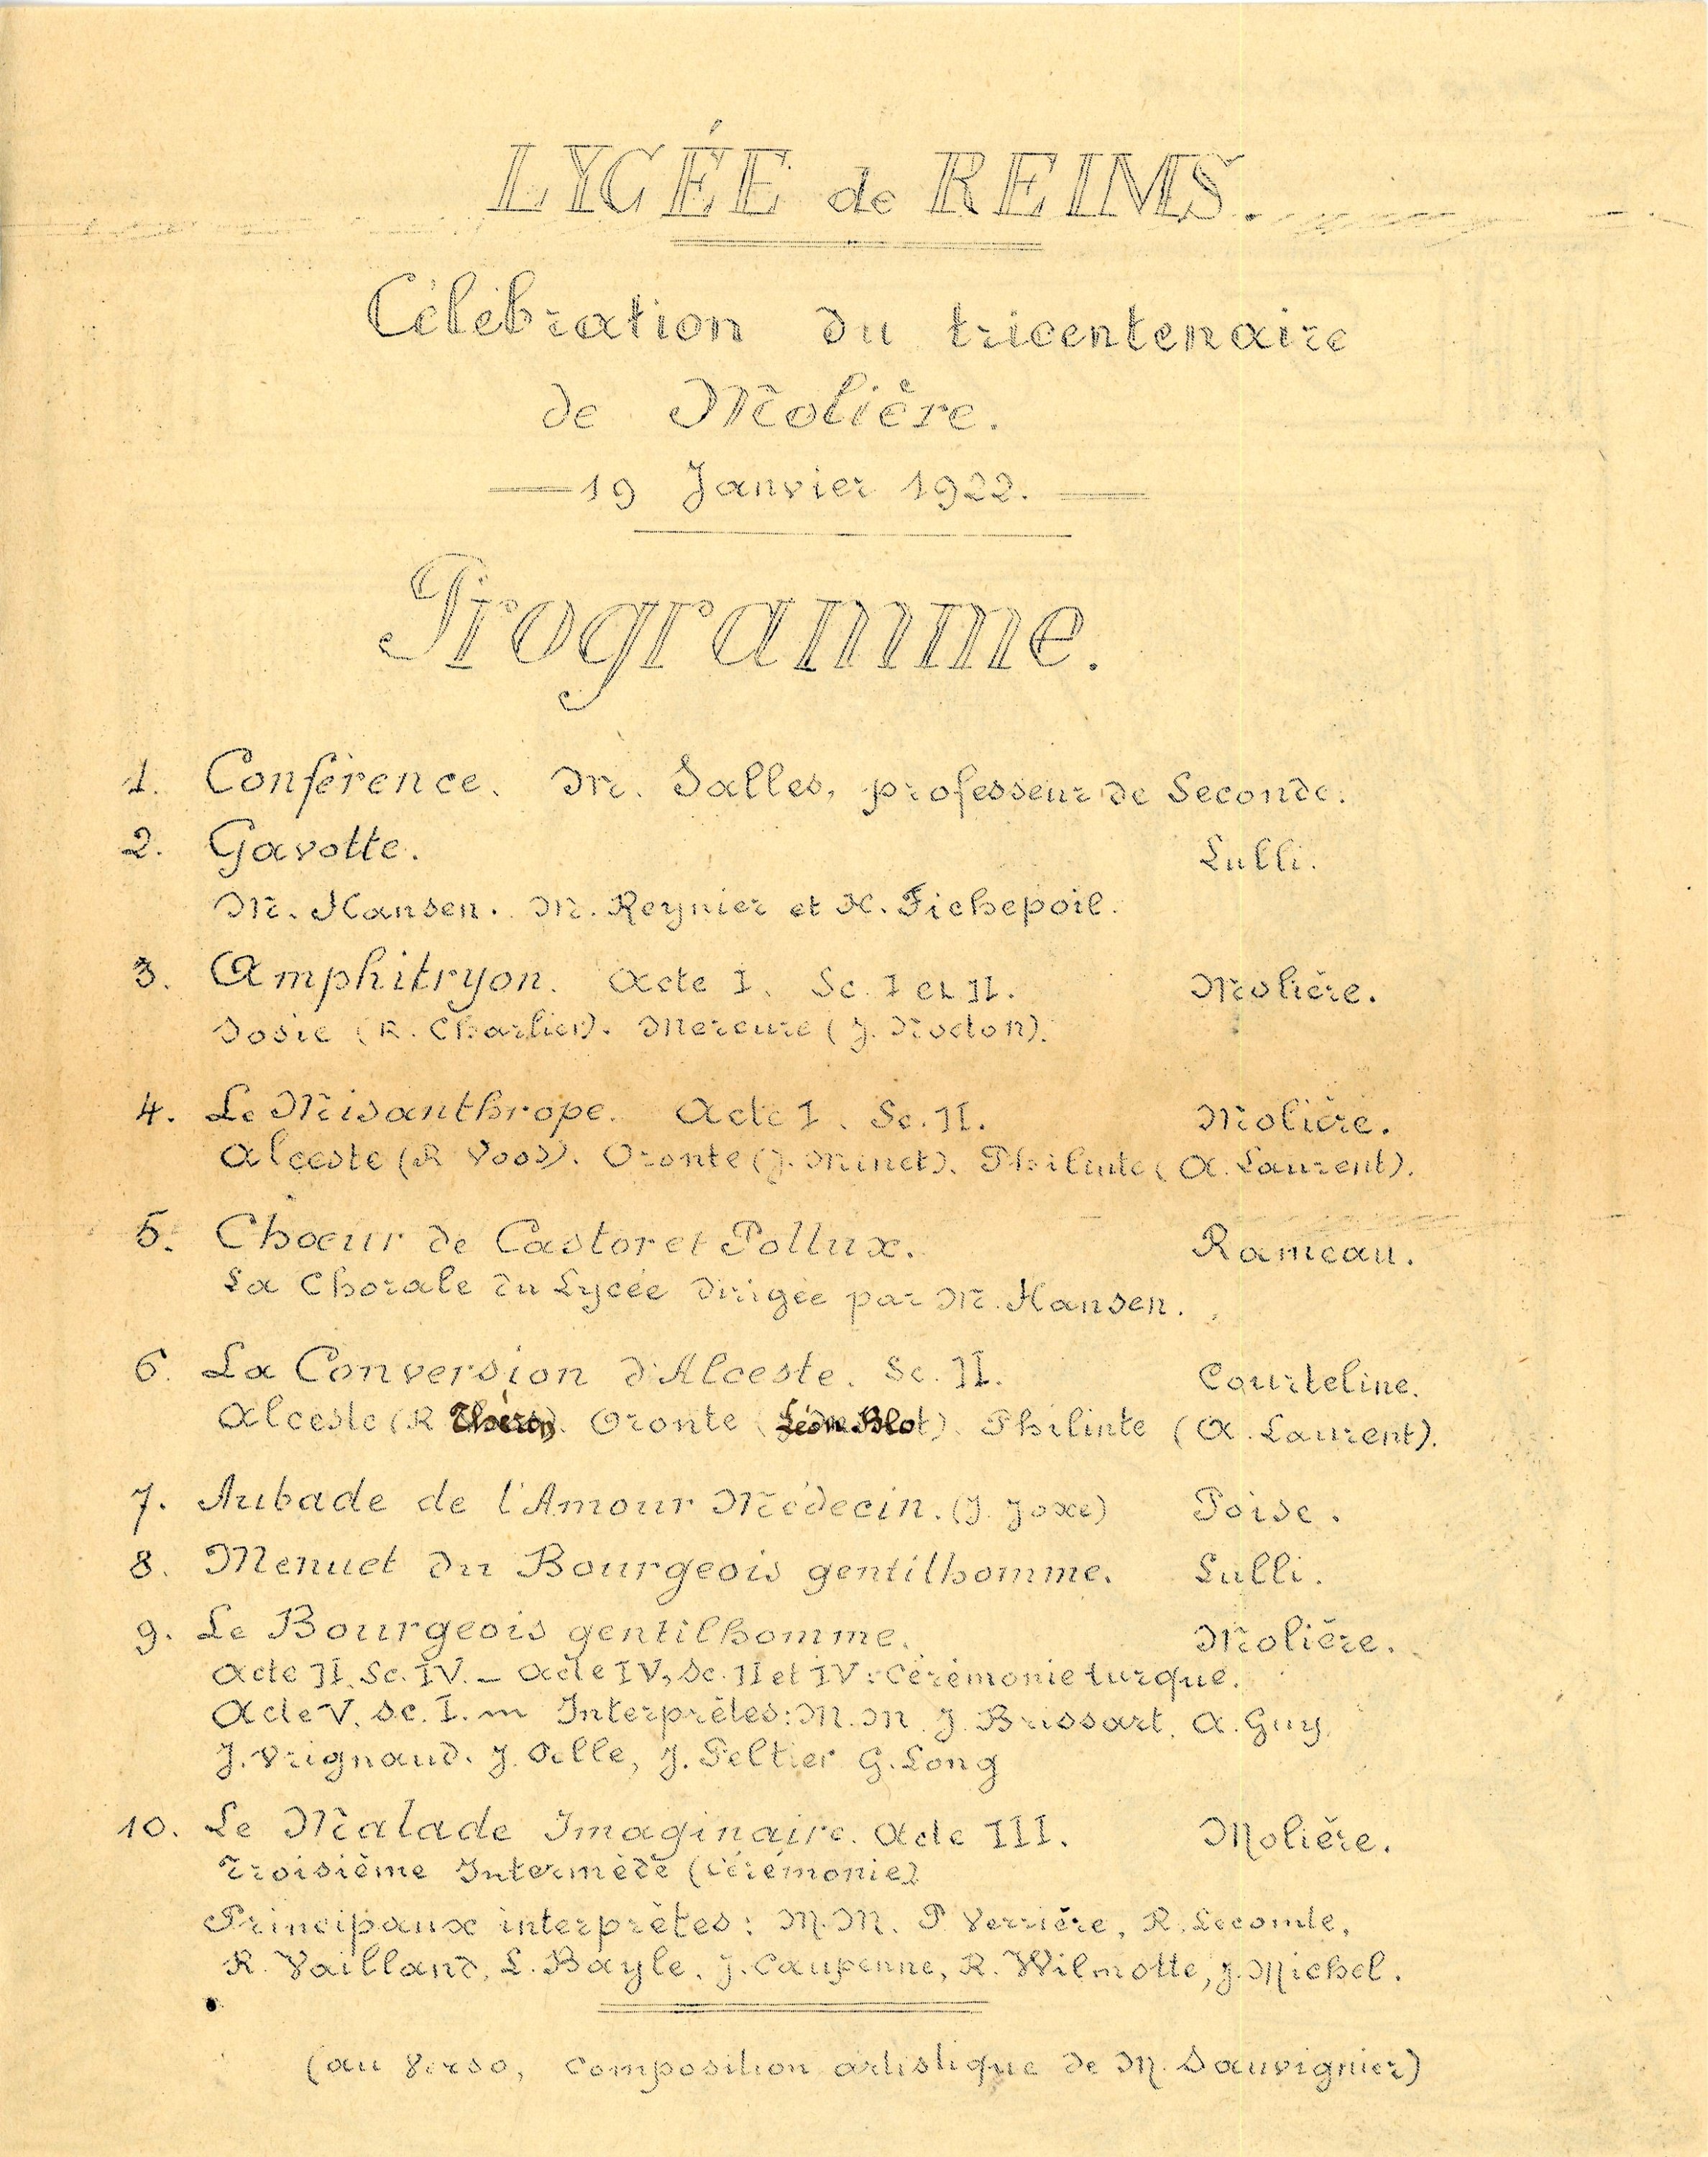 LYCÉE de REIMS.
Célébration du tricentenaire
de Molière.
— 19 Janvier 1922. —
Programme.
1. Conférence. Mr. Salles, professeur de Seconde.
2. Gavotte. Lulli.
M. Hansen. M. Reynier et H. Fichepoil.
3. Amphitryon. Acte I. Sc. I et II. Molière.
Sosie (R. Charlier). Mercure (J. Nocton).
4. Le Misanthrope. Acte I. Sc. II. Molière.
Alceste (R Voos). Oronte (J. Minet). Philinte (A. Laurent).
5. Chœur de Castor et Pollux. Rameau.
La Chorale du Lycée dirigée par M. Hansen.
6. La Conversion d'Alceste. Sc. II. Courteline.
Alceste (R Théron). Oronte (Léon Blot). Philinte (A. Laurent).
7. Aubade de l'Amour Médecin. (J. Joxe) Poise.
8. Menuet du Bourgeois gentilhomme. Lulli.
9. Le Bourgeois gentilhomme. Molière.
Acte II. Sc. IV. _ Acte IV, Sc. II et IV : Cérémonie turque.
Acte V. Sc. I. Interprètes: M.M. J. Brissart, A. Guy
J. Vrignaud. J. Oelle, J. Peltier G. Long
10. Le Malade Imaginaire. Acte III. Molière.
Troisième Intermède (Cérémonie)
Principaux interprètes: M.M. P. Verrière, R. Lecomte,
R. Vailland, L. Bayle, J. Caupenne, R. Wilmotte, J. Michel.
(au verso, composition artistique de M. Sauvignier)